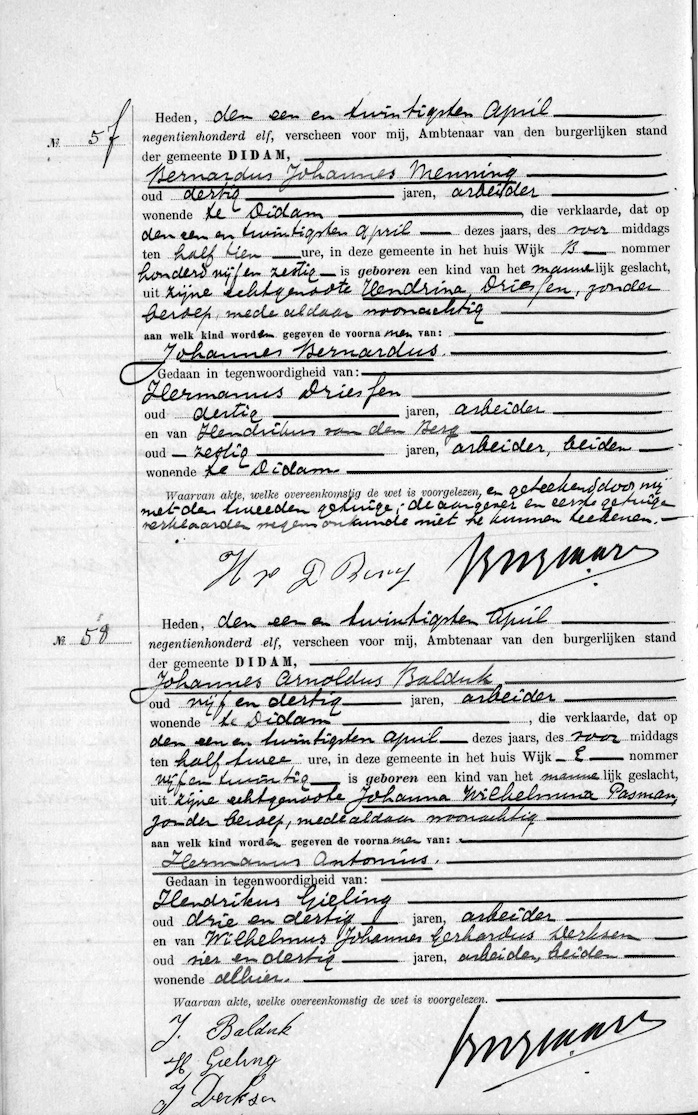 Heden, den een en twintigsten April
№ 57
negentienhonderd elf, verscheen voor mij, Ambtenaar van den burgerlijken stand
der gemeente DIDAM,
Bernardus Johannes Menning
oud dertig jaren, arbeider
wonende te Didam, die verklaarde, dat op
den een en twintigsten April dezes jaars, des voor middags
ten half tien ure, in deze gemeente in het huis Wijk B nommer
honderd vijf en zestig is geboren een kind van het mannelijk geslacht,
uit zijne echtgenoote Hendrina Driessen, zonder
beroep, mede aldaar woonachtig
aan welk kind worden gegeven de voornamen van:
Johannes Bernardus.
Gedaan in tegenwoordigheid van:
Hermanus Driessen
oud dertig jaren, arbeider
en van Hendrikus van den Berg
oud zestig jaren, arbeider, beiden
wonende te Didam.
Waarvan akte, welke overeenkomstig de wet is voorgelezen, en geteekend door mij
met den tweeden getuige; de aangever en eerste getuige
verklaarden wegens onkunde niet te kunnen teekenen.
H v D Berg
Heden, den een en twintigsten April
№ 58
negentienhonderd elf, verscheen voor mij, Ambtenaar van den burgerlijken stand
der gemeente DIDAM,
Johannes Arnoldus Balduk
oud vijf en dertig jaren, arbeider
wonende te Didam, die verklaarde, dat op
den een en twintigsten April dezes jaars, des voor middags
ten half twee ure, in deze gemeente in het huis Wijk E nommer
vijf en twintig is geboren een kind van het mannelijk geslacht,
uit zijne echtgenoote Johanna Wilhelmina Pasman,
zonder beroep, mede aldaar woonachtig
aan welk kind worden gegeven de voornamen van:
Hermanus Antonius.
Gedaan in tegenwoordigheid van:
Hendrikus Gieling
oud drie en dertig jaren, arbeider
en van Wilhelmus Johannes Gerhardus Derksen
oud vier en dertig jaren, arbeider, beiden
wonende alhier.
Waarvan akte, welke overeenkomstig de wet is voorgelezen.
J. Balduk
H Gieling
J Derksen